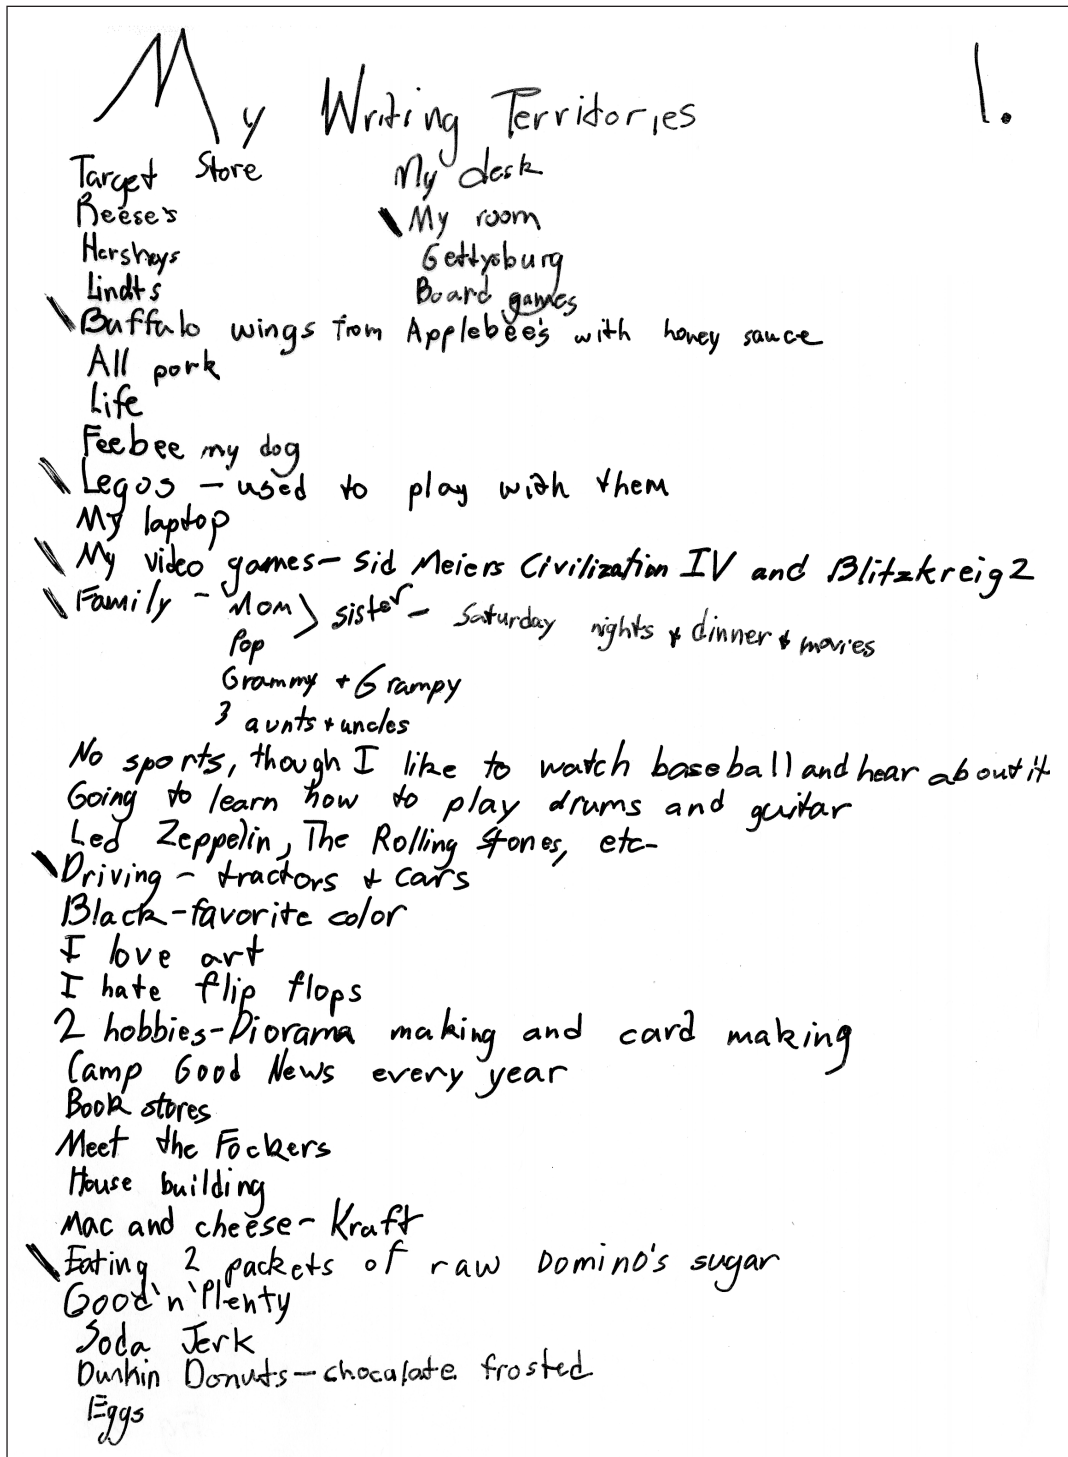 My Writing Territories 1.
Target Store My desk
Reese's My room
Hersheys Gettysburg
Lindts Board games
Buffalo wings from Applebee's with honey sauce
All pork
Life
Feebee my dog
Legos - used to play with them
My laptop
My video games - Sid Meiers Civilization IV and Blitzkreig 2
Family - Mom > sister - Saturday nights + dinner + movies
Pop
Grammy + Grampy
3 aunts + uncles
No sports, though I like to watch baseball and hear about it
Going to learn how to play drums and guitar
Led Zeppelin, The Rolling Stones, etc-
Driving - tractors + cars
Black - favorite color
I love art
I hate flip flops
2 hobbies - Diorama making and card making
Camp Good News every year
Book stores
Meet the Fockers
House building
Mac and cheese - Kraft
Eating 2 packets of raw Domino's sugar
Good 'n' Plenty
Soda Jerk
Dunkin Donuts - chocalate frosted
Eggs